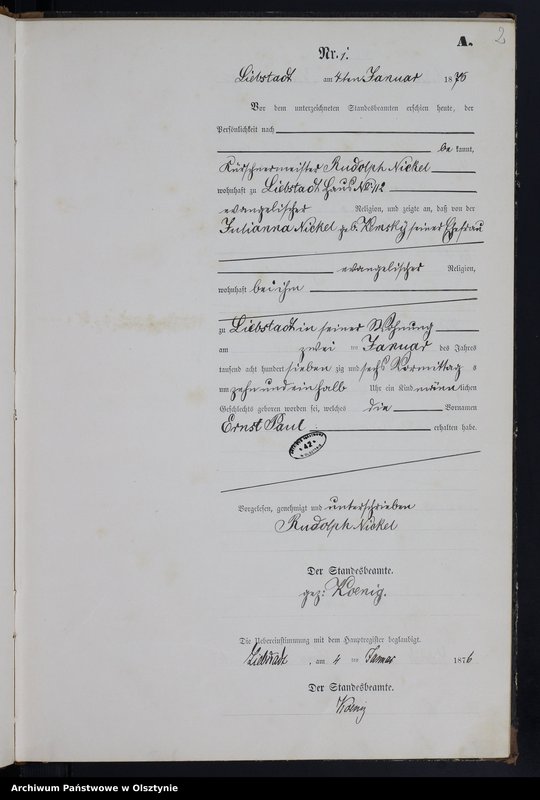 2
A.
Nr. 1.
Liebstadt am 4ten Januar 1876
Vor dem unterzeichneten Standesbeamten erschien heute, der
Persönlichkeit nach
be kannt,
Kürschnermeister Rudolph Nickel
wohnhaft zu Liebstadt Haus No 112
evangelischer Religion, und zeigte an, daß von der
Julianna Nickel geb. Kemsky seiner Ehefrau
evangelischer Religion,
wohnhaft bei ihm
zu Liebstadt in seiner Wohnung
am zwei ten Januar des Jahres
tausend acht hundert sieben zig und sechs Vormittag s
um zehn und ein halb Uhr ein Kind männ lichen
Geschlechts geboren worden sei, welches die Vornamen
Ernst Paul erhalten habe.
Vorgelesen, genehmigt und unterschrieben
Rudolph Nickel
Der Standesbeamte.
gez: Koenig.
Die Uebereinstimmung mit dem Hauptregister beglaubigt.
Liebstadt, am 4 ten Januar 1876
Der Standesbeamte.
Koenig
Archiwum Państwowe w Olsztynie